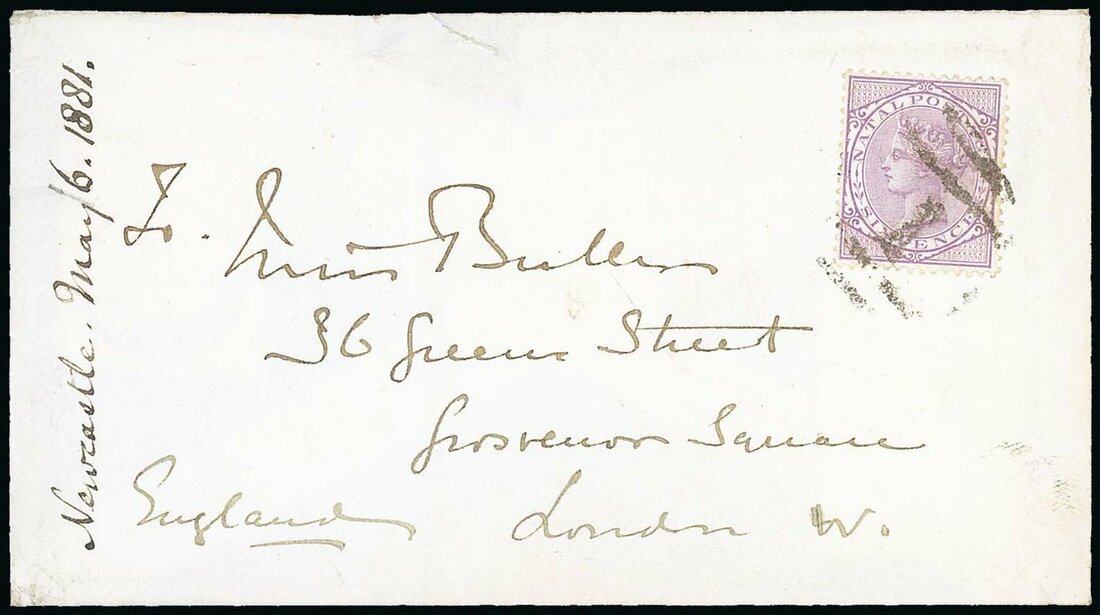 Newcastle. May 6. 1881.
NATAL POS
SIXPENCE
To. Miss Buller
36 Green Street
Grosvenor Square
London W.
England